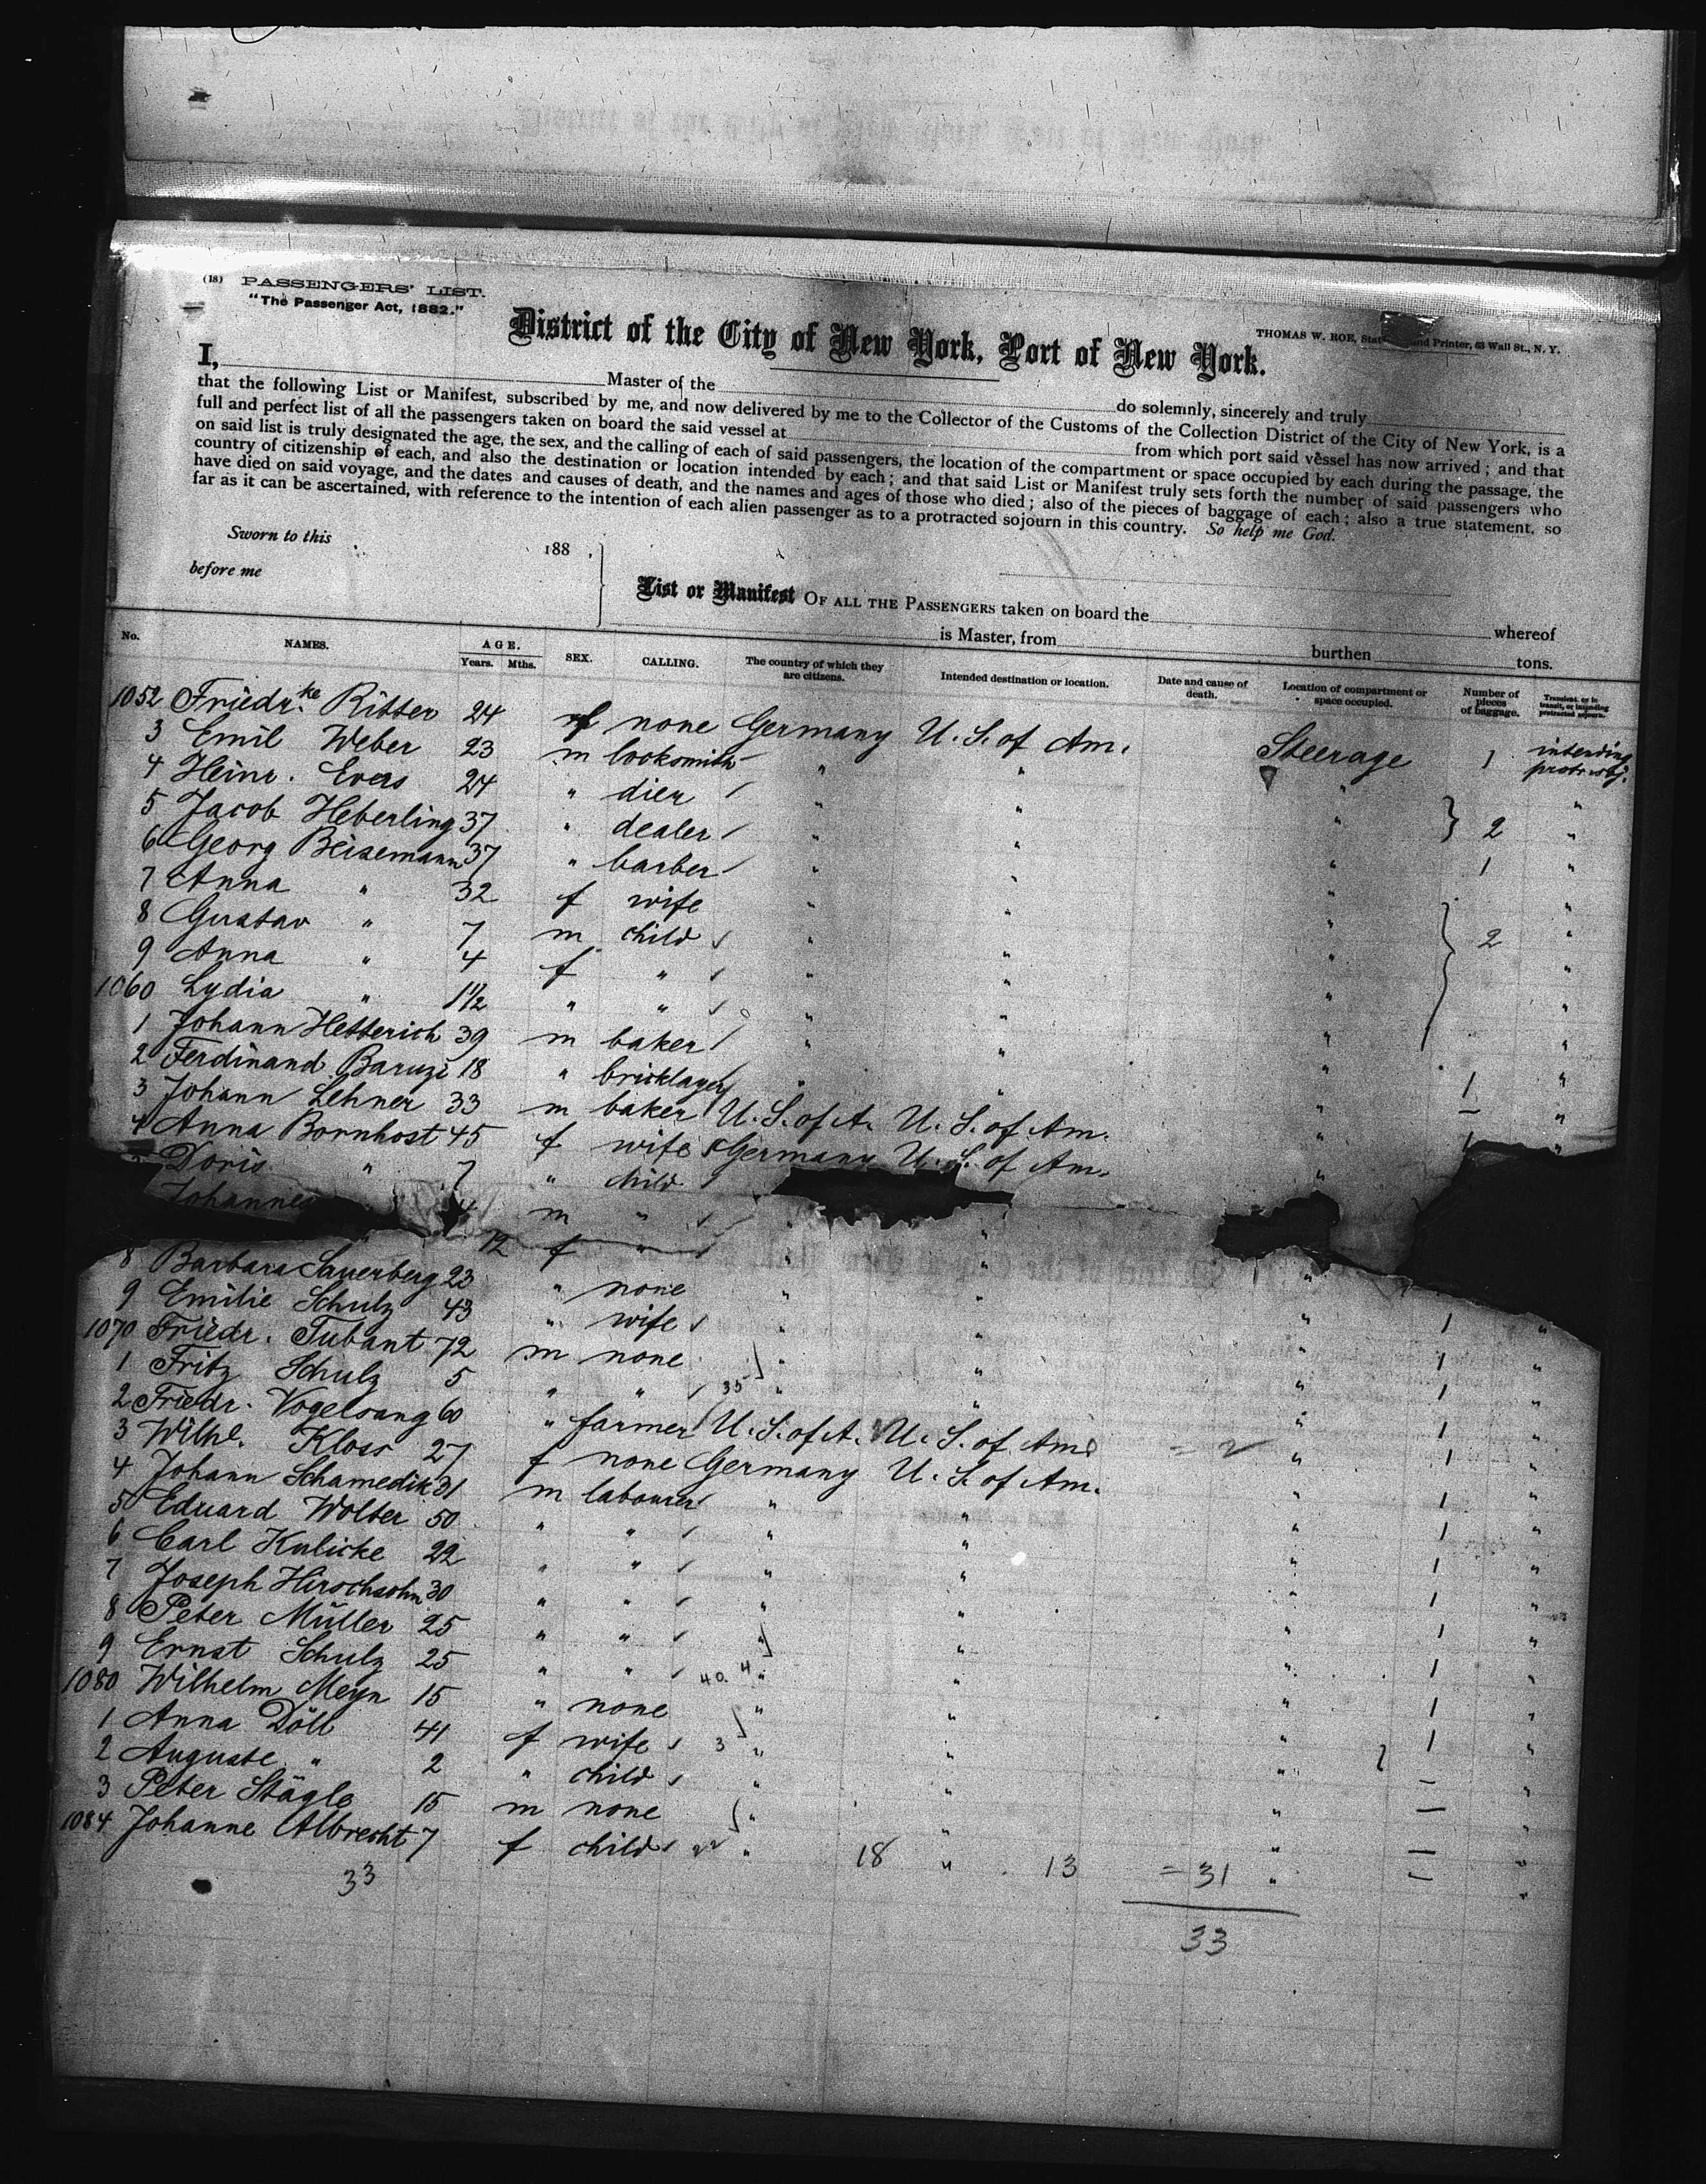 (18) PASSENGERS' LIST.
"The Passenger Act, 1882."
THOMAS W. ROE, and Printer, 63 Wall St., N. Y.
District of the City of New York, Port of New York.
I, Master of the do solemnly, sincerely and truly
that the following List or Manifest, subscribed by me, and now delivered by me to the Collector of the Customs of the Collection District of the City of New York, is a
full and perfect list of all the passengers taken on board the said vessel at from which port said vessel has now arrived; and that
on said list is truly designated the age, the sex, and the calling of each of said passengers, the location of the compartment or space occupied by each during the passage, the
country of citizenship of each, and also the destination or location intended by each; and that said List or Manifest truly sets forth the number of said passengers who
have died on said voyage, and the dates and causes of death, and the names and ages of those who died; also of the pieces of baggage of each; also a true statement, so
far as it can be ascertained, with reference to the intention of each alien passenger as to a protracted sojourn in this country. So help me God.
Sworn to this 188 ,
before me
List or Manifest OF ALL THE PASSENGERS taken on board the whereof
is Master, from burthen tons.
No. NAMES. AGE. Years. Mths. SEX. CALLING. The country of which they are citizens. Intended destination or location. Date and cause of death. Location of compartment or space occupied. Number of pieces of baggage. Transient, or in transit, or intending protracted sojourn.
1052 Friedr.ke Ritter 24 f none Germany U. S. of Am. Steerage 1 intending
3 Emil Weber 23 m locksmith " " " "
4 Heinr. Evers 24 " dier " " " 2 "
5 Jacob Heberling 37 " dealer " " " 1 "
6 Georg Beisemann 37 " barber " " " "
7 Anna " 32 f wife " " " 2 "
8 Gustav " 7 m child " " " "
9 Anna " 4 f " " " " "
1060 Lydia " 11/2 " " " " " "
1 Johann Hetterich 39 m baker " " " 1 "
2 Ferdinand 18 " bricklayer " " " — "
3 Johann Lehner 33 m baker U. S. of A. U. S. of Am. " 1 "
4 Anna Bornhost 45 f wife Germany U. S. of Am. "
Doris " 7 " child
Johannes m " " "
f " " "
8 Barbara Sauerberg 23 " none " " " 1 "
9 Emilie Schulz 43 " wife " " " 1 "
1070 Friedr. Tubant 72 m none " " " 1 "
1 Fritz Schulz 5 " " 35 " " " 1 "
2 Friedr. Vogelsang 60 " farmer U. S. of A. U. S. of Am. = 2 " 1 "
3 Wilhl. Kloss 27 f none Germany U. S. of Am. " 1 "
4 Johann Schamedik 31 m labourer " " " 1 "
5 Eduard Wolter 50 " " " " " 1 "
6 Carl Kulicke 22 " " " " " 1 "
7 Joseph Hirschsohn 30 " " " " " 1 "
8 Peter Müller 25 " " " " " 1 "
9 Ernst Schulz 25 " " 40. 4 " " " 1 "
1080 Wilhelm Meyn 15 " none " " " 1 "
1 Anna Döll 41 f wife 3 " " " — "
2 Auguste " 2 " child " " " — "
3 Peter Stägle 15 m none " " " — "
1084 Johanne Albrecht 7 f child 22 " 18 " 13 = 31 " — "
33
33